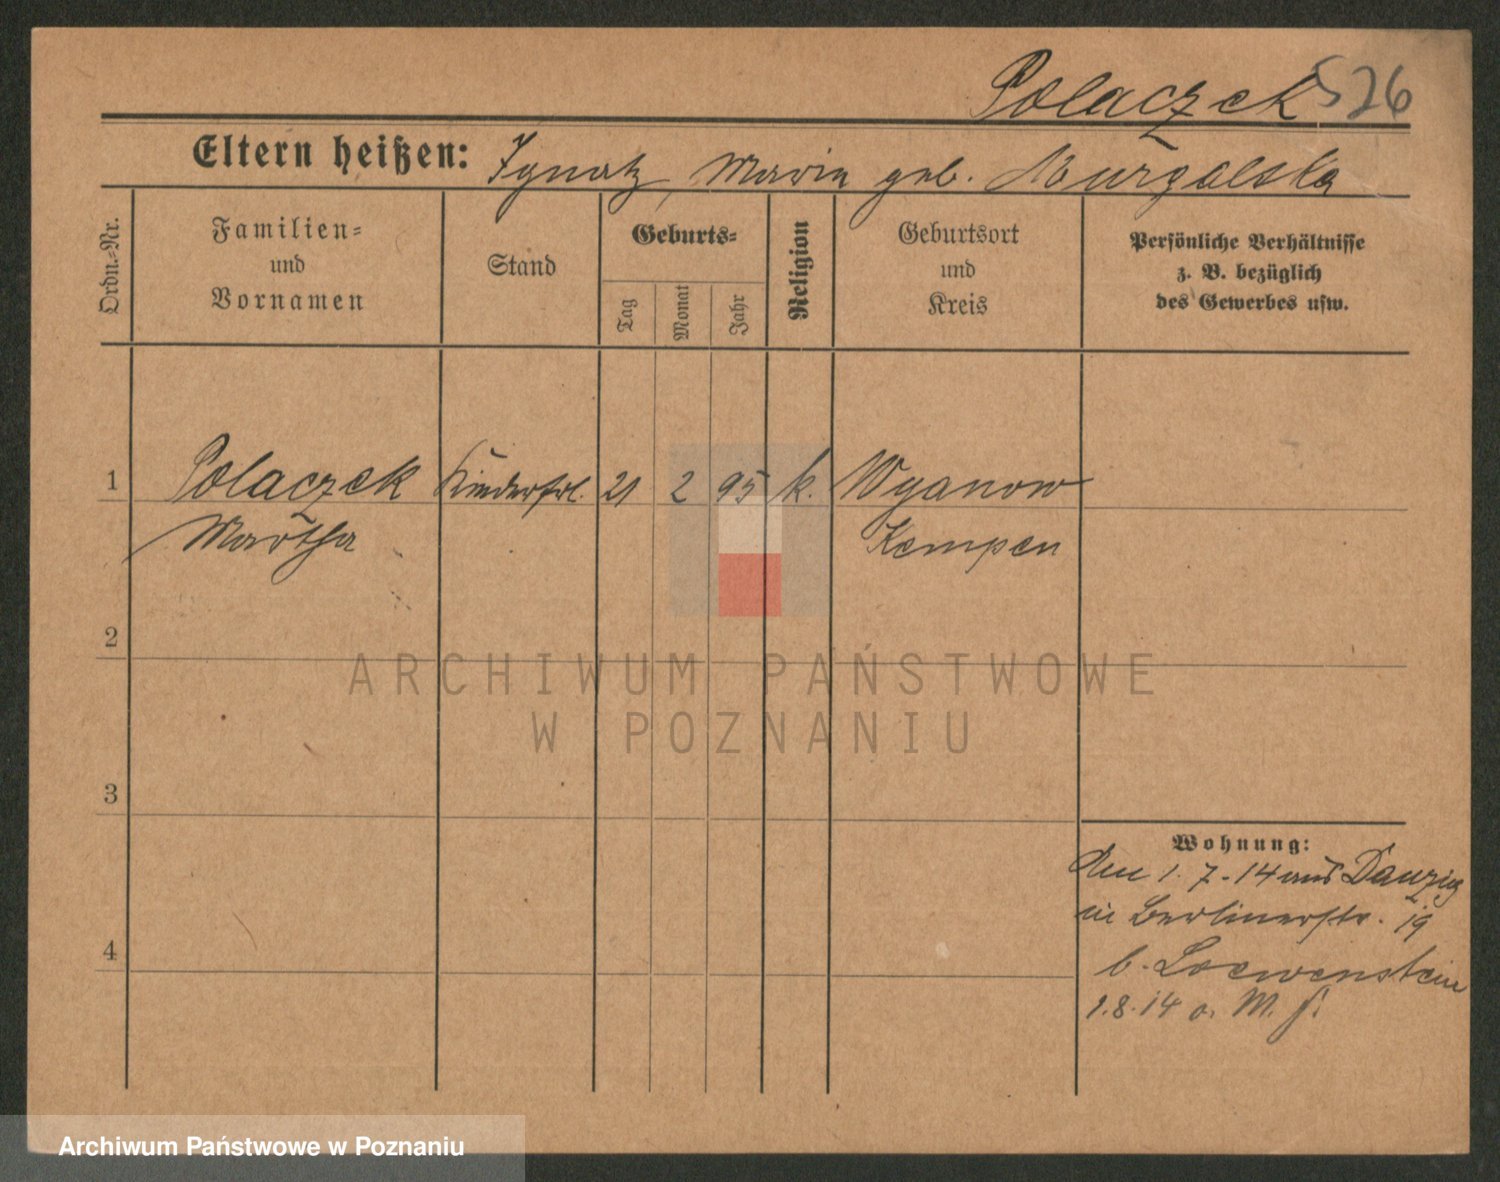 Polaczek 526
Eltern heißen: Ignatz, Maria geb. Murgalska
Ordn.-Nr.
Familien-
und
Vornamen
Stand
Geburts-
Tag
Monat
Jahr
Religion
Geburtsort
und
Kreis
Persönliche Verhältnisse
z. B. bezüglich
des Gewerbes usw.
1 Polaczek Kinderfrl. 21 2 95 k. Wyanow
Martha Kempen
2
ARCHIWUM PAŃSTWOWE
W POZNANIU
3
Wohnung:
den 1. 7. 14 aus Danzig
in Berlinerstr. 19
4
b. Loewenstein
1.8.14 o. M.
Archiwum Państwowe w Poznaniu